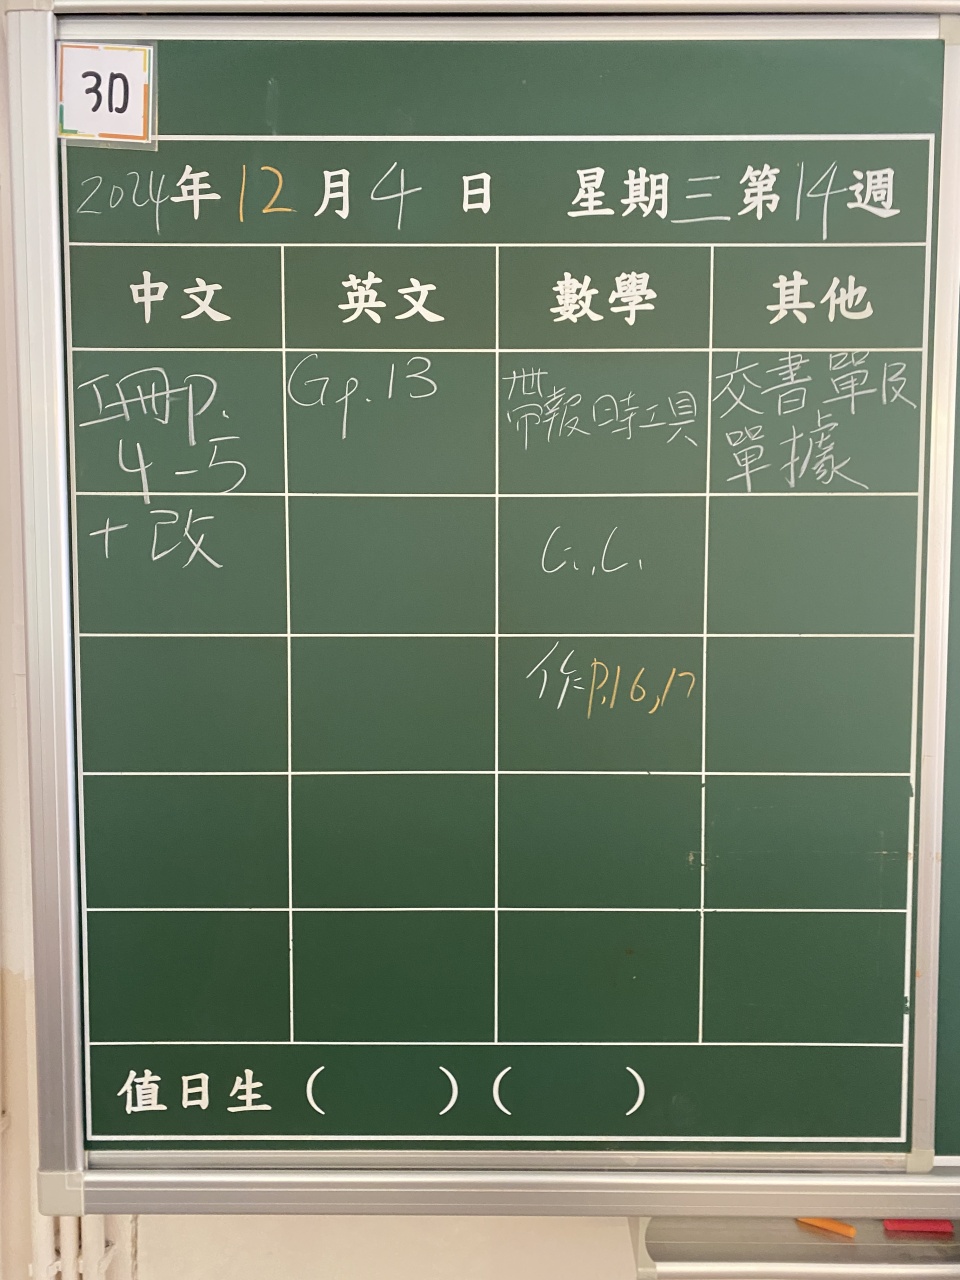 3D
2024年12月4日 星期三第14週
中文 英文 數學 其他
工冊p.
4-5
Gp.13
帶報時工具
交書單及
單據
+改
作P.16,17
值日生（ ）（ ）